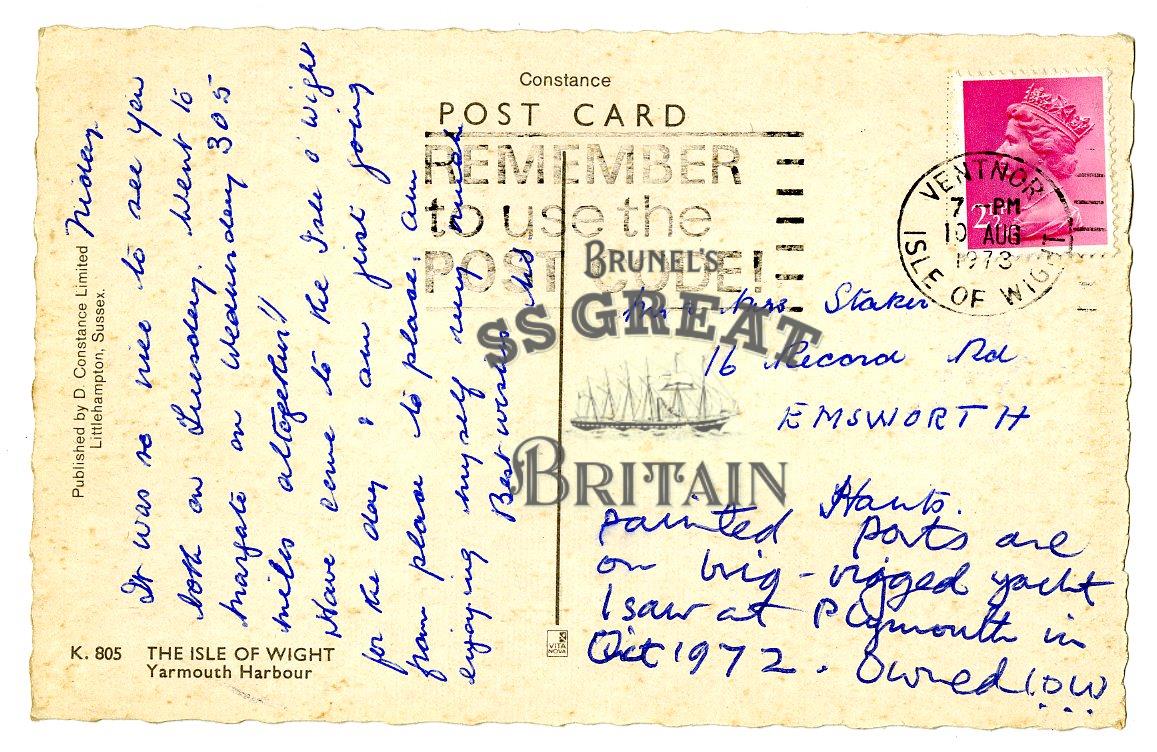 Constance
POST CARD
REMEMBER
to use the
POST CODE!
VENTNOR
7 - PM
10 AUG
1973
ISLE OF WIGHT
2½
Published by D. Constance Limited
Littlehampton, Sussex.
Friday
It was so nice to see you
both on Tuesday. Went to
Margate on Wednesday 305
miles altogether!!
Have come to the Isle o' Wight
for the day & am just going
from place to place. am
enjoying myself very much
Best wishes
Mr & Mrs Staker
16 Record Rd
EMSWORTH
Hants.
painted ports are
on brig-rigged yacht
I saw at Plymouth in
Oct 1972. Owned IOW
BRUNEL'S
SS GREAT
BRITAIN
K. 805 THE ISLE OF WIGHT
Yarmouth Harbour
VITA
NOVA